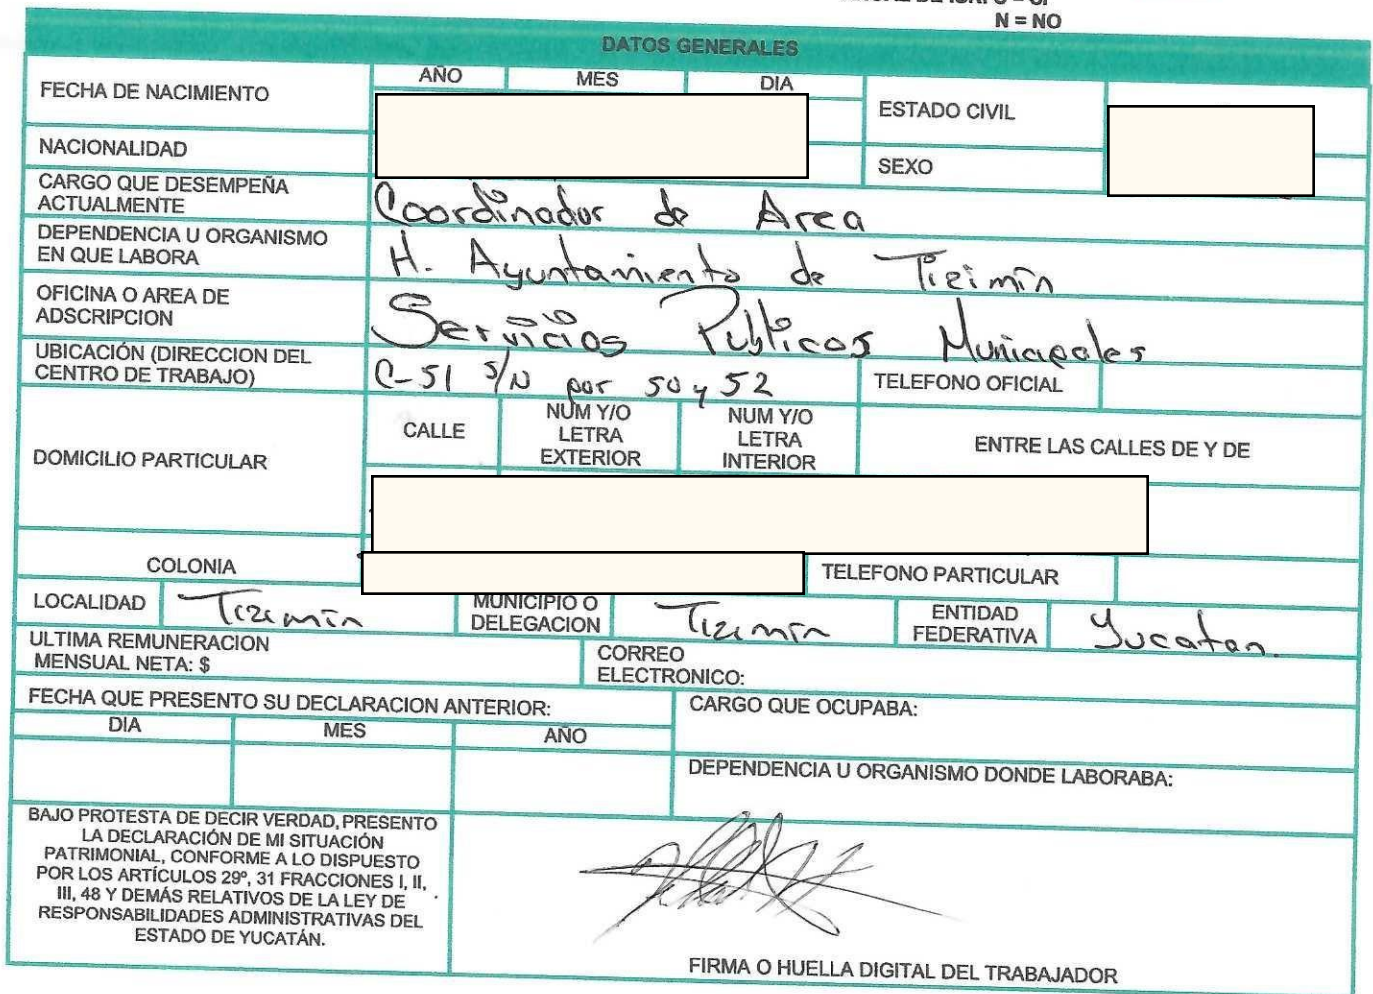 N = NO
DATOS GENERALES
FECHA DE NACIMIENTO
AÑO MES DIA
ESTADO CIVIL
NACIONALIDAD
SEXO
CARGO QUE DESEMPEÑA
ACTUALMENTE
Coordinador de Area
DEPENDENCIA U ORGANISMO
EN QUE LABORA
H. Ayuntamiento de Tizimín
OFICINA O AREA DE
ADSCRIPCION
Servicios Publicos Municipales
UBICACIÓN (DIRECCION DEL
CENTRO DE TRABAJO)
C-51 S/N por 50 y 52
TELEFONO OFICIAL
DOMICILIO PARTICULAR
CALLE
NUM Y/O
LETRA
EXTERIOR
NUM Y/O
LETRA
INTERIOR
ENTRE LAS CALLES DE Y DE
COLONIA
TELEFONO PARTICULAR
LOCALIDAD
Tizimín
MUNICIPIO O
DELEGACION
Tizimín
ENTIDAD
FEDERATIVA
Yucatan.
ULTIMA REMUNERACION
MENSUAL NETA: $
CORREO
ELECTRONICO:
FECHA QUE PRESENTO SU DECLARACION ANTERIOR:
DIA MES AÑO
CARGO QUE OCUPABA:
DEPENDENCIA U ORGANISMO DONDE LABORABA:
BAJO PROTESTA DE DECIR VERDAD, PRESENTO
LA DECLARACIÓN DE MI SITUACIÓN
PATRIMONIAL, CONFORME A LO DISPUESTO
POR LOS ARTÍCULOS 29º, 31 FRACCIONES I, II,
III, 48 Y DEMÁS RELATIVOS DE LA LEY DE
RESPONSABILIDADES ADMINISTRATIVAS DEL
ESTADO DE YUCATÁN.
FIRMA O HUELLA DIGITAL DEL TRABAJADOR